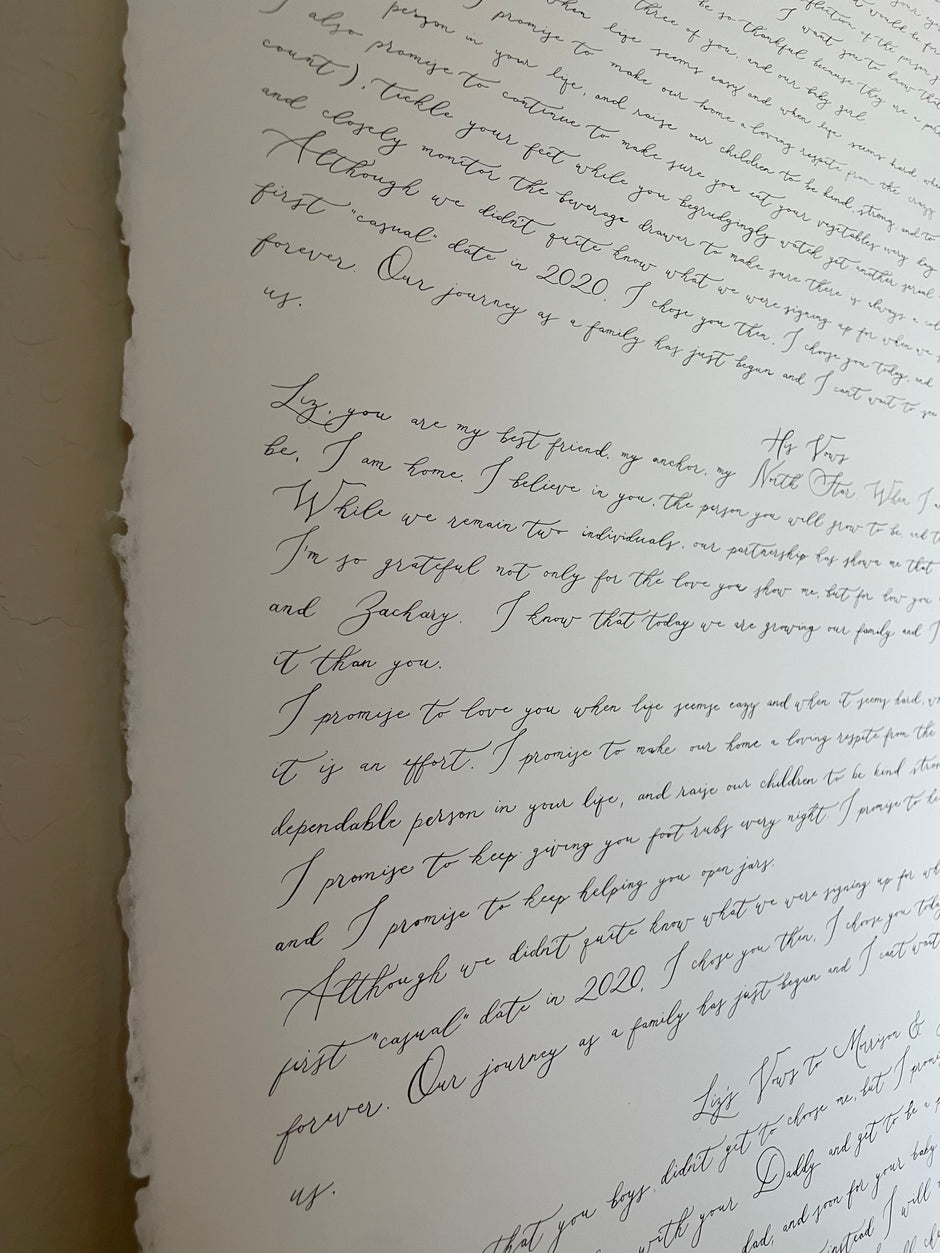 your
flection of the person
would be
be so thankful because they are a
three of you, and our baby girl.
I want you to know that
when life seems easy and when life seems hard,
I promise to make our home a loving respite from the crazy
person in your life, and raise our children to be kind, strong and to
I also promise to continue to make sure you eat your vegetables every day
count), tickle your feet while you begrudgingly watch yet another serial
and closely monitor the beverage drawer to make sure there is always a
Although we didn't quite know what we were signing up for when we
first "casual" date in 2020, I chose you then, I choose you today, and
forever. Our journey as a family has just begun and I can't wait to
us.
His Vows
Liz, you are my best friend, my anchor, my North Star. When I
be, I am home. I believe in you, the person you will grow to be, and
While we remain two individuals, our partnership has shown me that
I'm so grateful not only for the love you show me, but for how you
and Zachary. I know that today we are growing our family and I
it than you.
I promise to love you when life seemse eazy and when it seems hard,
it is an effort. I promise to make our home a loving respite from the
dependable person in your life, and raise our children to be kind
I promise to keep giving you foot rubs every night. I promise to
and I promise to keep helping you open jars.
Although we didn't quite know what we were signing up for
first "casual" date in 2020, I chose you then, I choose you
forever. Our journey as a family has just begun and I can't wait
us.
Liz's Vows to Morrison &
that you boys didn't get to choose me, but I
with your Daddy and get to be a
dad, and soon for your baby
instead I will